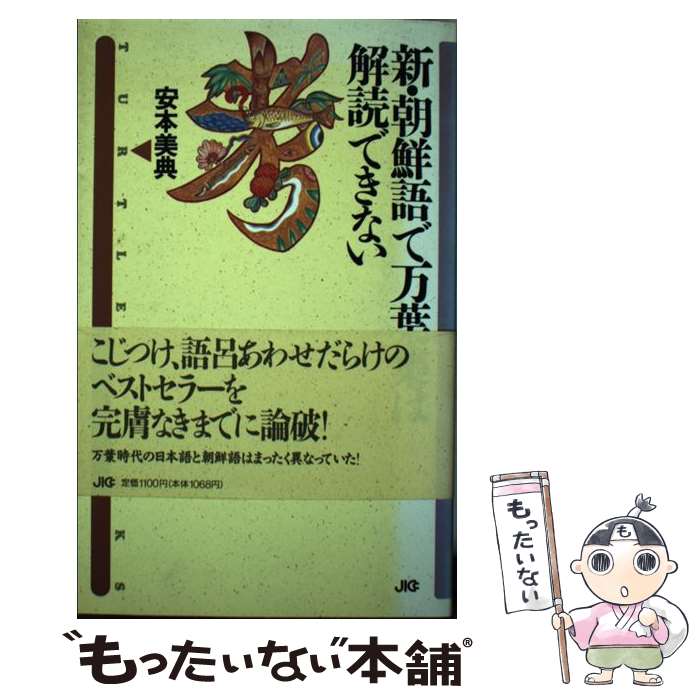 新・朝鮮語で万葉集は
解読できない
安本美典
考
TURTLE
KS
こじつけ、語呂あわせだらけの
ベストセラーを
完膚なきまでに論破!
万葉時代の日本語と朝鮮語はまったく異なっていた!
JICC 定価1100円(本体1068円)
JICC
もったいない
も
"もったいない本舗"®